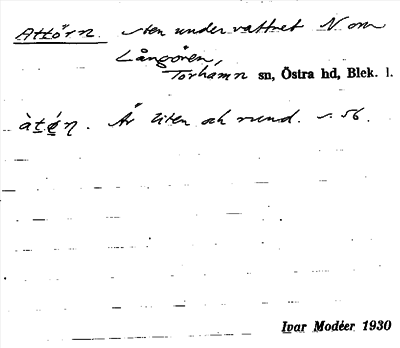 Attörn. sten under vattnet N om
Långören,
Torhamn sn, Östra hd, Blek. l.
àtǿn. Är liten och rund. s. 56.
Ivar Modéer 1930